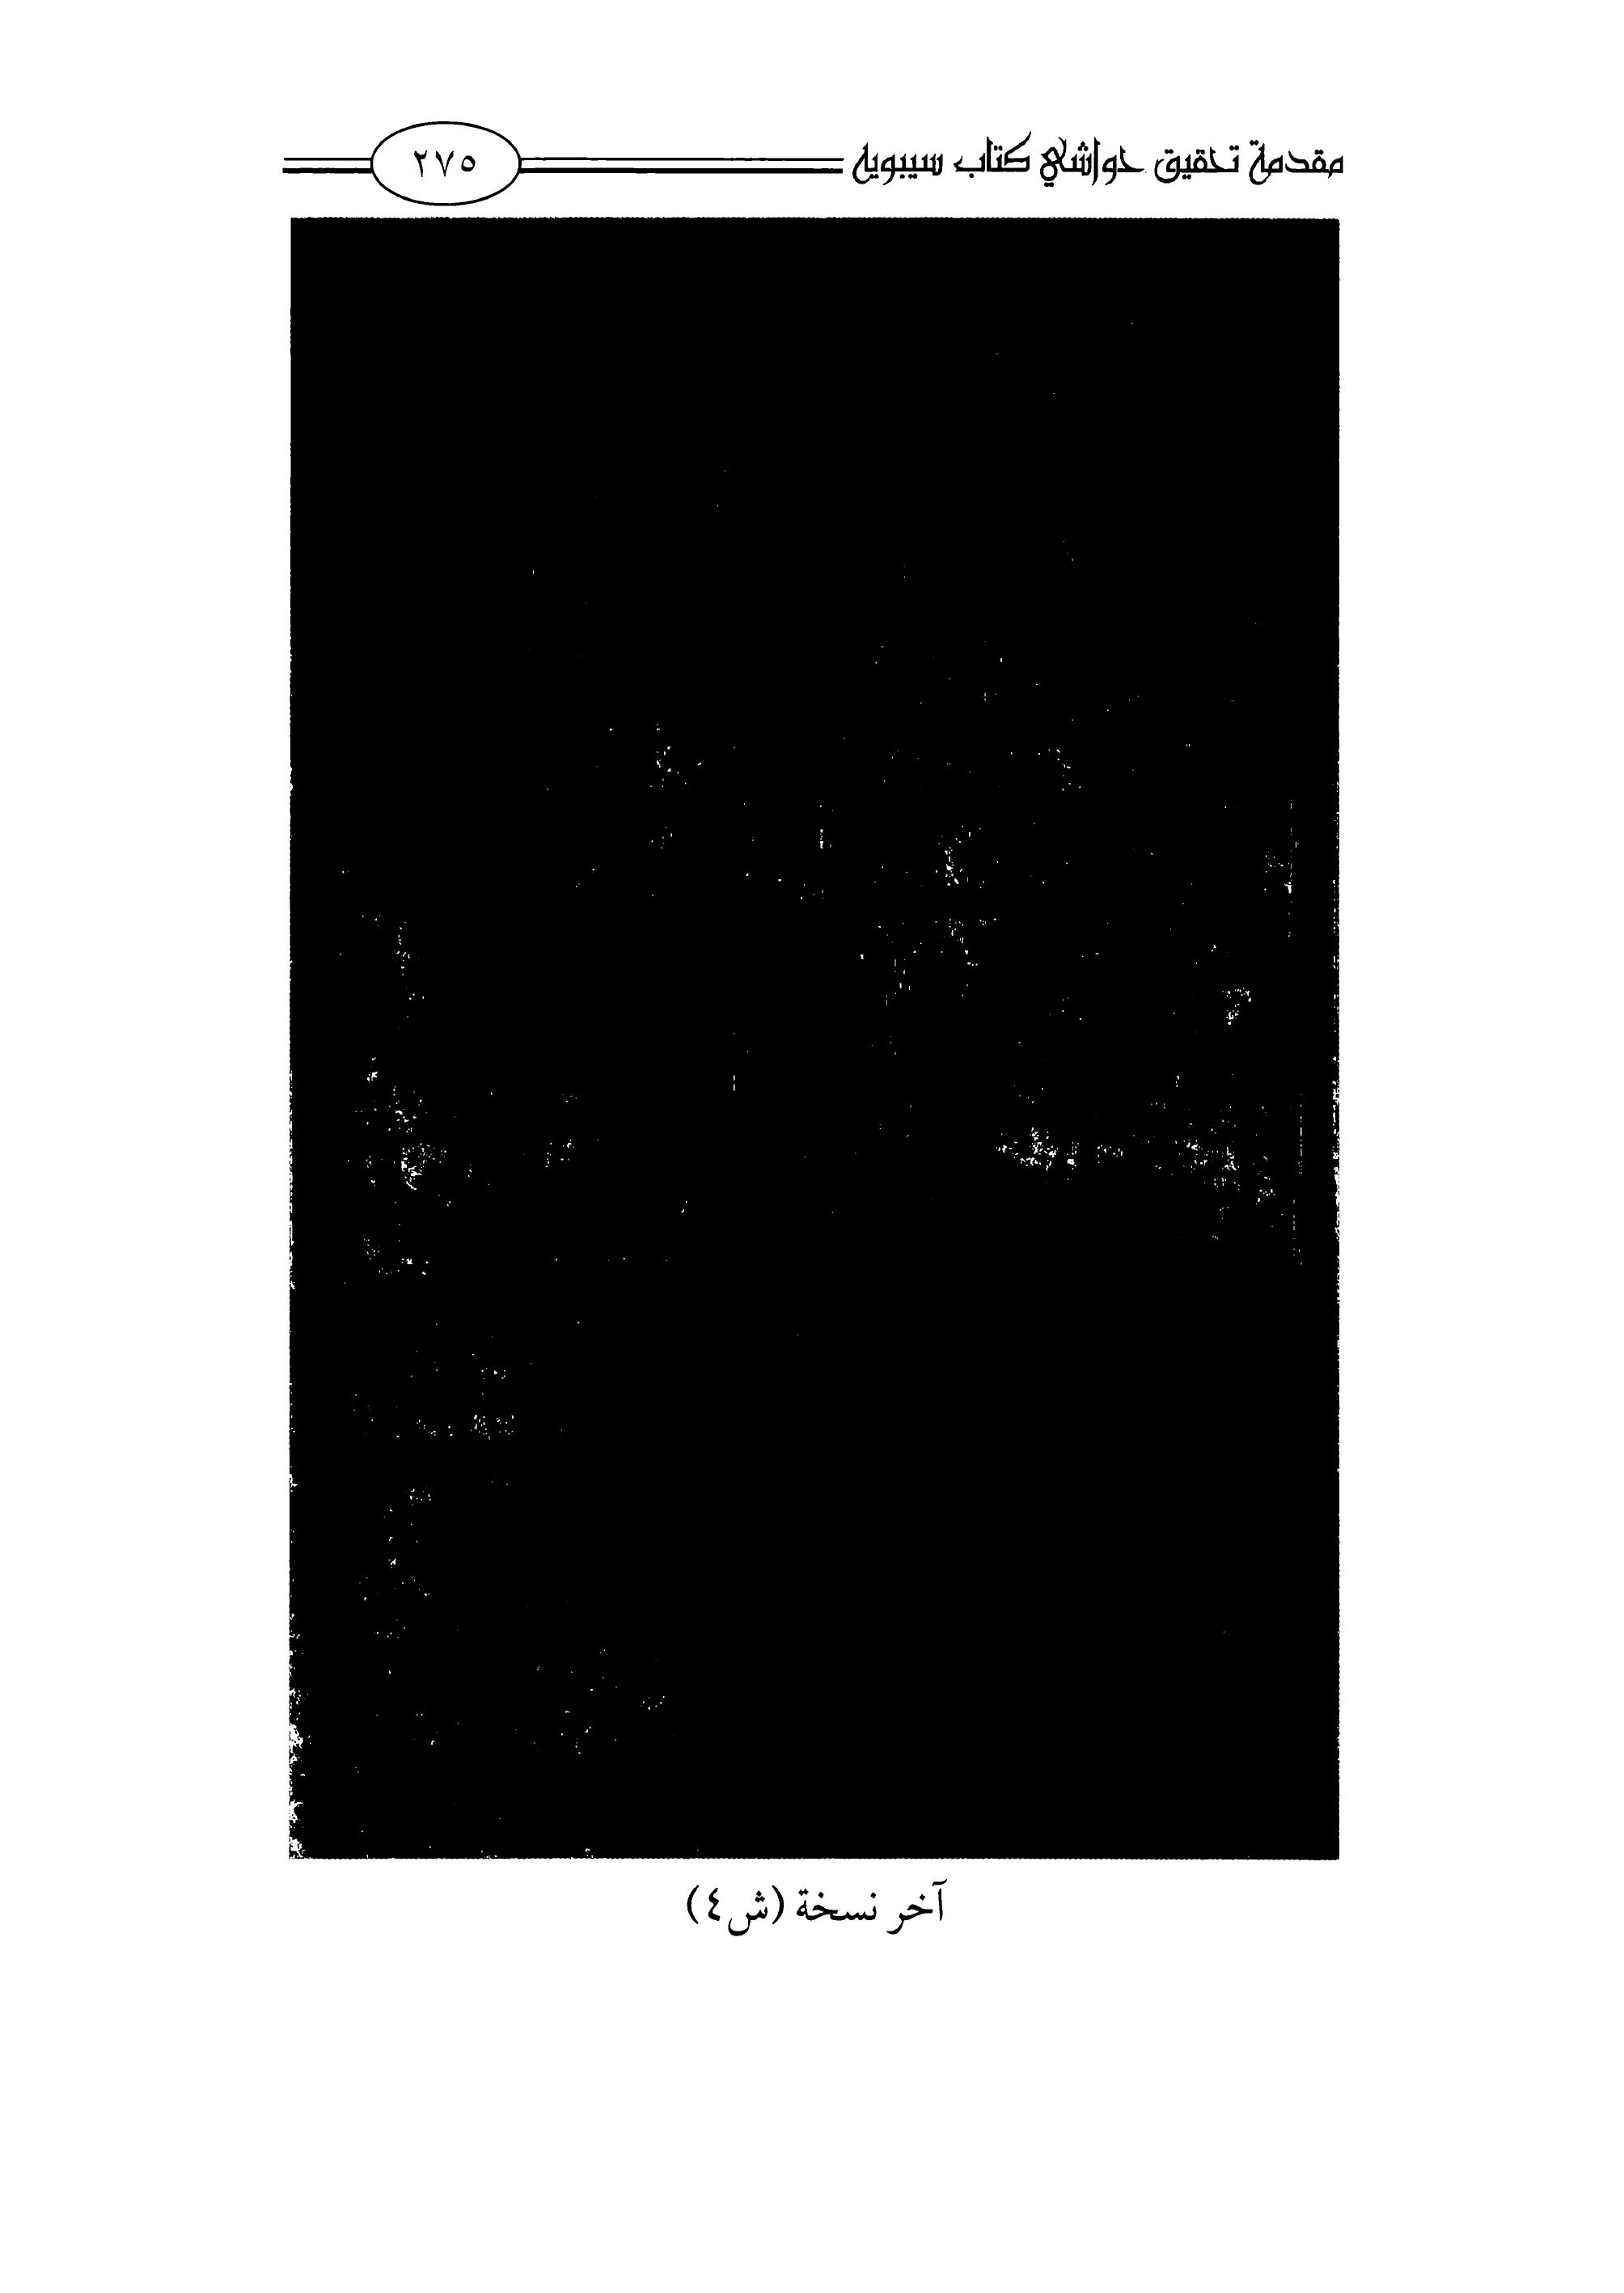 مقدمة تحقيق حواشي كتاب سيبويه
٢٧٥
آخر نسخة (ش٤)